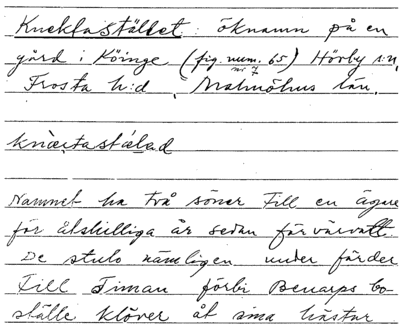 Knektastället: öknamn på en
gård i Köinge (fig. num. 65) Hörby s:n,
nr 7
Frosta h:d, Malmöhus län.
knæctastæład
Namnet ha två söner till en ägare
för åtskilliga år sedan förvärvat.
De stulo nämligen under färder
till Timan förbi Benarps bo-
ställe klöver åt sina hästar